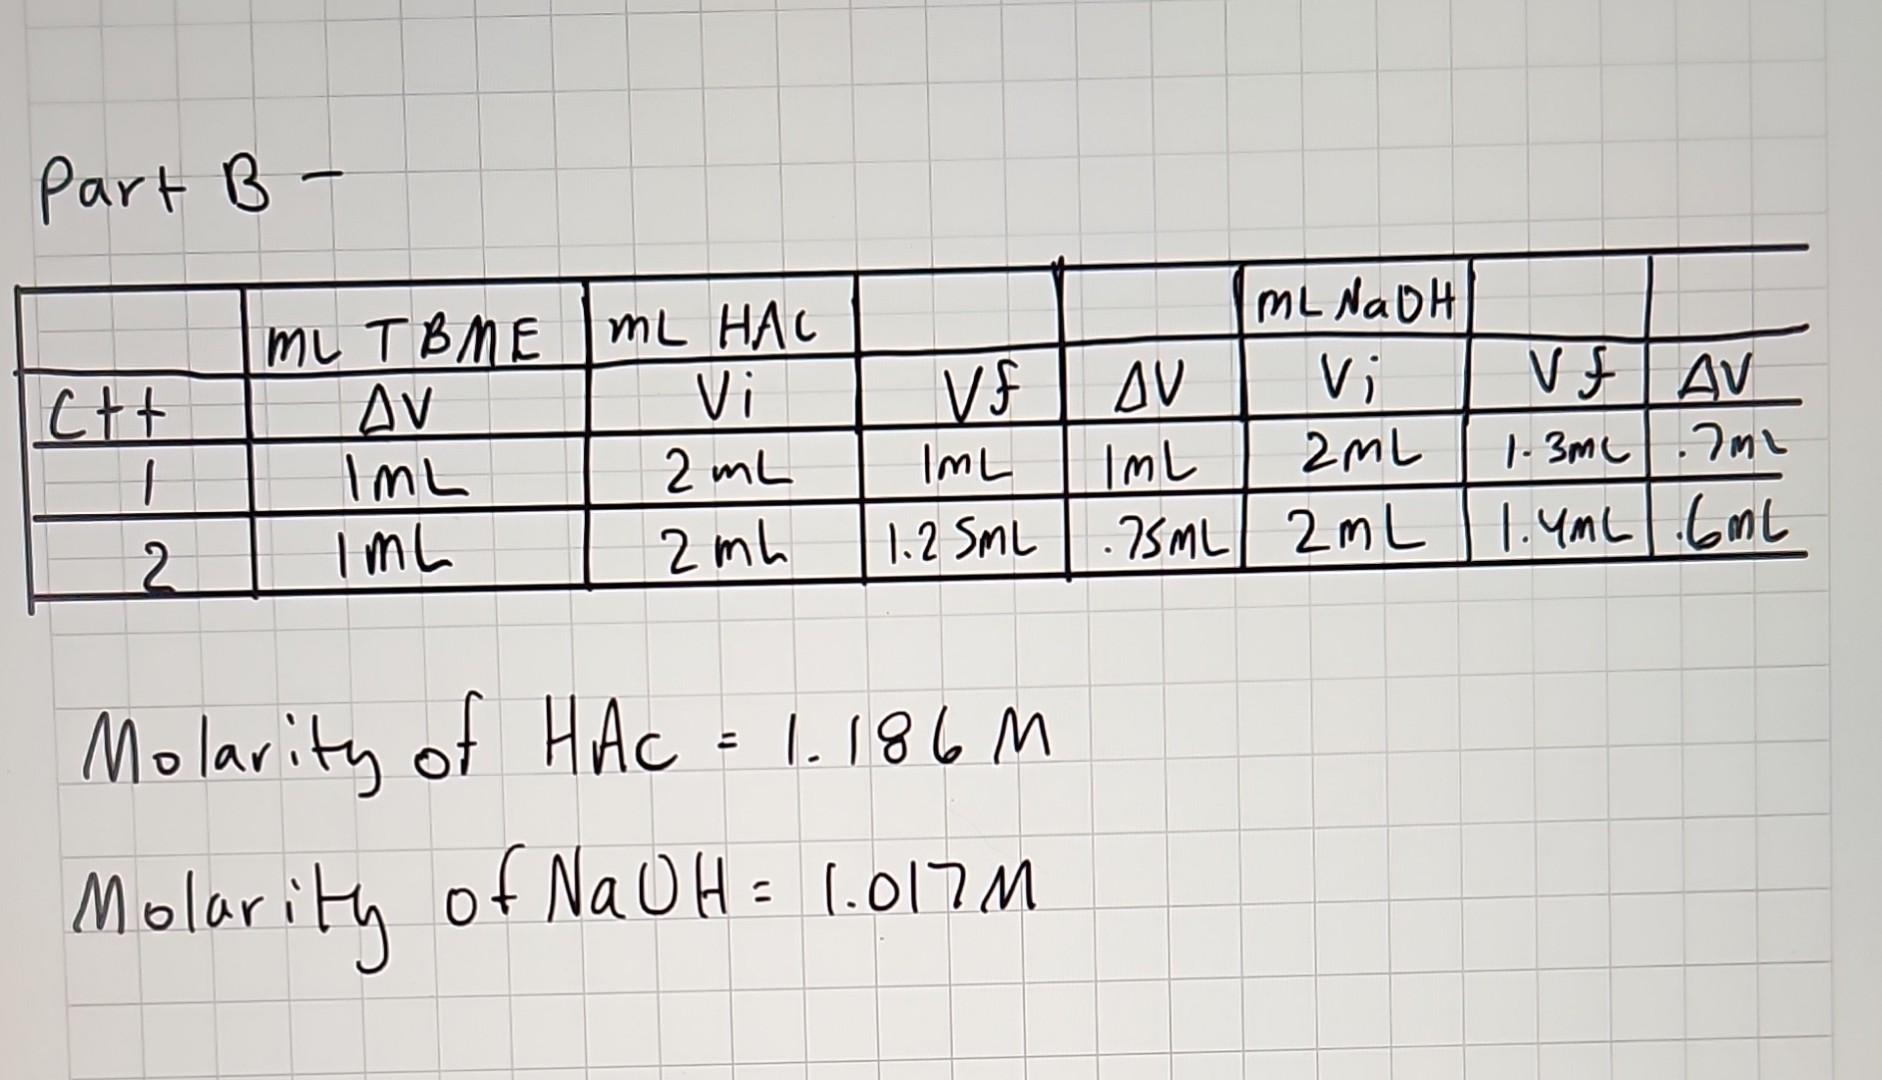 Part B -
mL TBME mL HAc mL NaOH
C++ ΔV Vi Vf ΔV Vi Vf ΔV
1 1mL 2mL 1mL 1mL 2mL 1.3mL .7mL
2 1mL 2mL 1.25mL .75mL 2mL 1.4mL .6mL
Molarity of HAc = 1.186 M
Molarity of NaOH = 1.017M